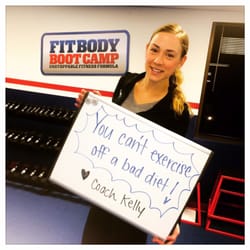 FIT BODY
BOOT CAMP
UNSTOPPABLE FITNESS FORMULA
You can't exercise
off a bad diet!
Coach Kelly